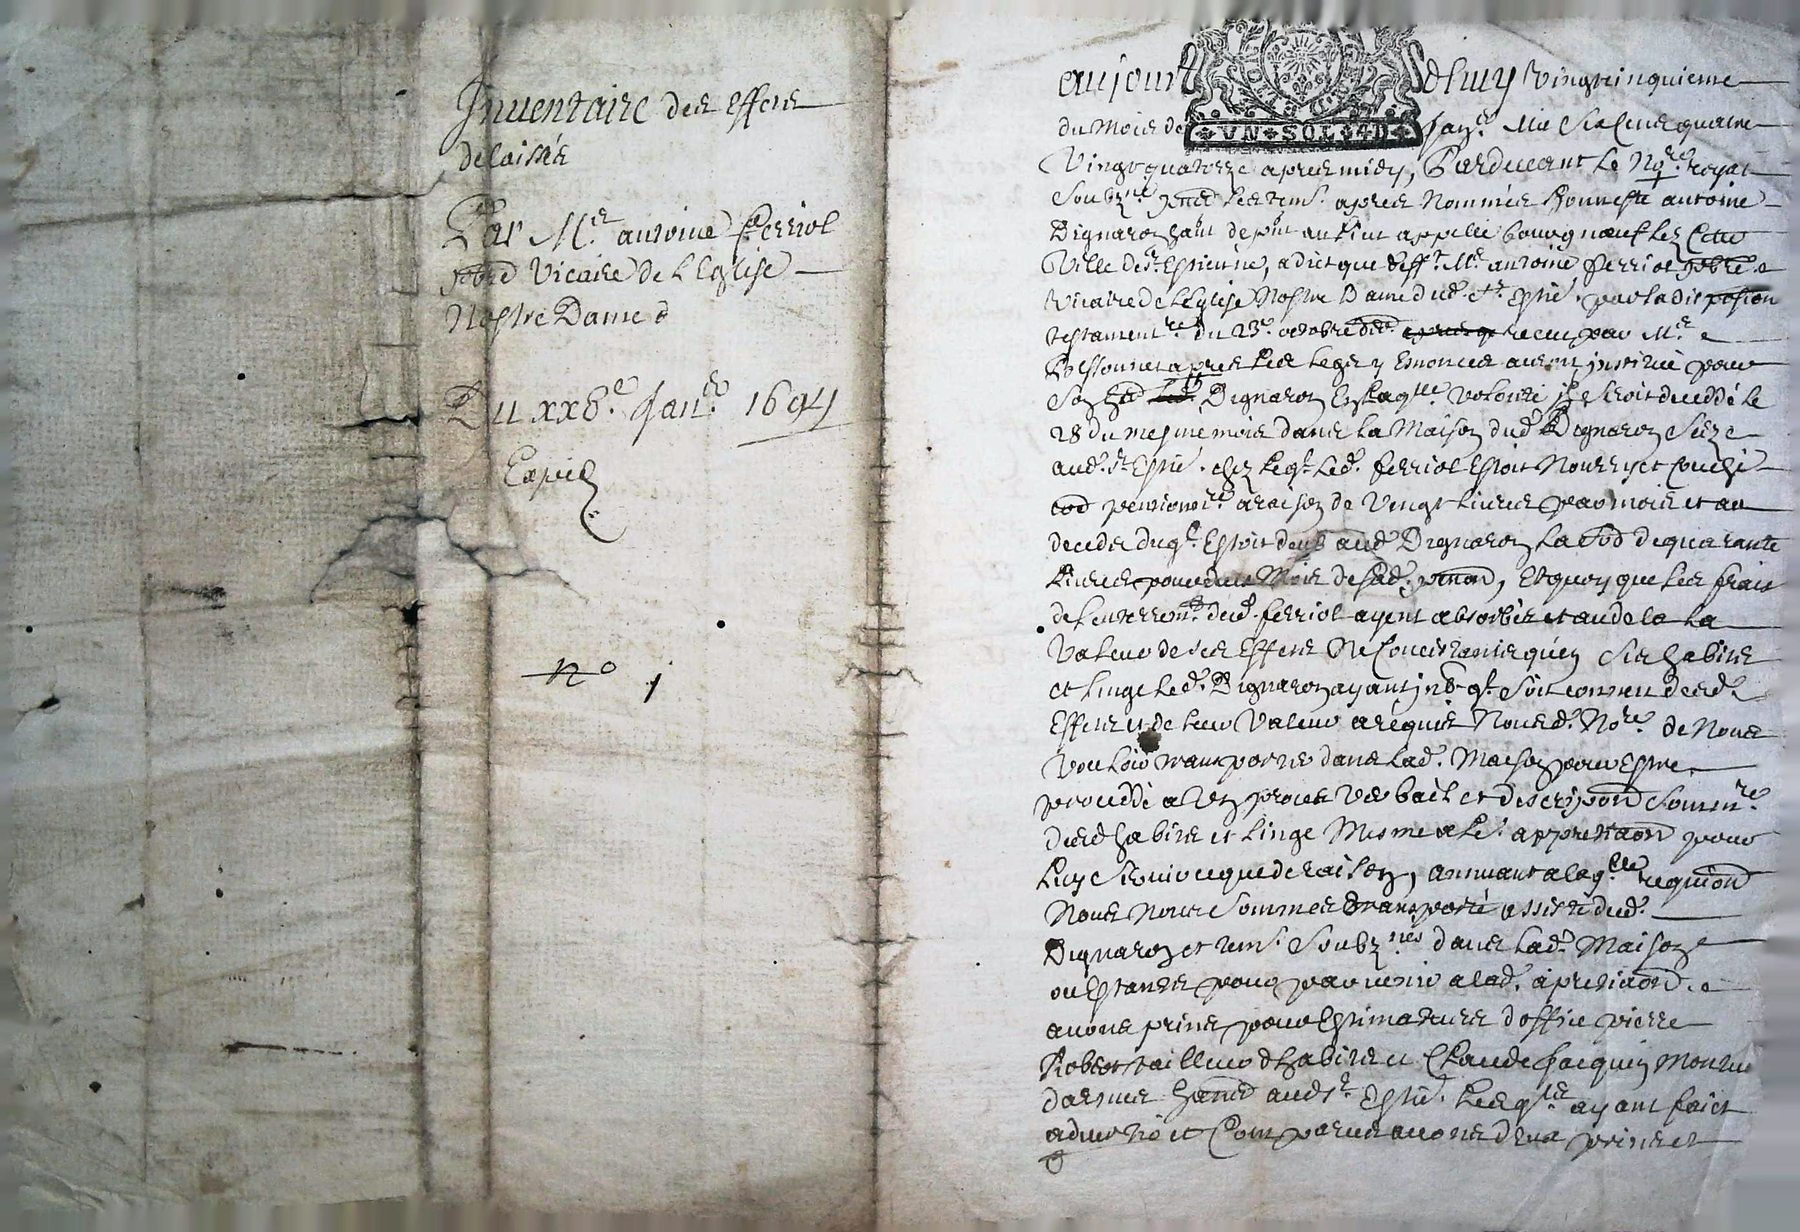 Inventaire des effets
delaissés
Par Mre antoine ferriol
pbre Vicaire de l'Eglise
Nostre Dame
Du xxve Janer 1694
Expié
no 1
aujourdhuy vingtcinquieme
VN SOL 4D
du Mois de Janer Mil Six Cens quatre
Vingt quatorze apres midy, Pardevant le Nore royal
Soubzne, et les tesm. apres Nommés honneste antoine
Dignaron hant de pnt au lieu appellé bourgneuf Lez Cette
Ville de St Estienne, a dict que deff. Mre antoine ferriol pbre et
vicaire de l'Eglise Nostre Dame dud. St Estie. par sa disposion
testamentre du 23e octobre der receu par Mre
apres les legs y enoncés auroit institué pour
Son Dignaron En laqlle volonté il seroit decedé le
28 du mesme mois dans la Maison dud Dignaron Size
aud. St Estie. chez leql led. ferriol estoit Nourry et Couché
pensionre a raison de Vingt livres par mois et au
decedz duql Estoit deub aud Dignaron la de quarante
livres pour deux Mois de sad. pension, et quoy que les frais
de l'enterremt dud. ferriol ayent absorbés et au dela la
Valeur de ses effets Ne Concistants qu'en Ses habits
et linge led. Dignaron ayant soit convenu desd.
Effets et de leur Valeur a requis Nousd. Nore de Nous
vouloir transporter dans lad. Maison pour Estre
procedde a un proces verbail et descripon Sommre
desd habits et linge Mesme a le. appretiaon pour
Luy Servir ce que de raison, annuant a laqlle requion
Nous Nous Sommes transporté assisté dud.
Dignaron et tesm. Soubznés dans lad. Maison
ou Estants pour parvenir a lad. apretiaon
avons prins pour Estimateurs d'office pierre
Robert tailleur d'habits et Claude Jacquin Monteur
darmes hants aud St Estie. Lesqles ayant faict
advertir et Comparus avons deux prins et